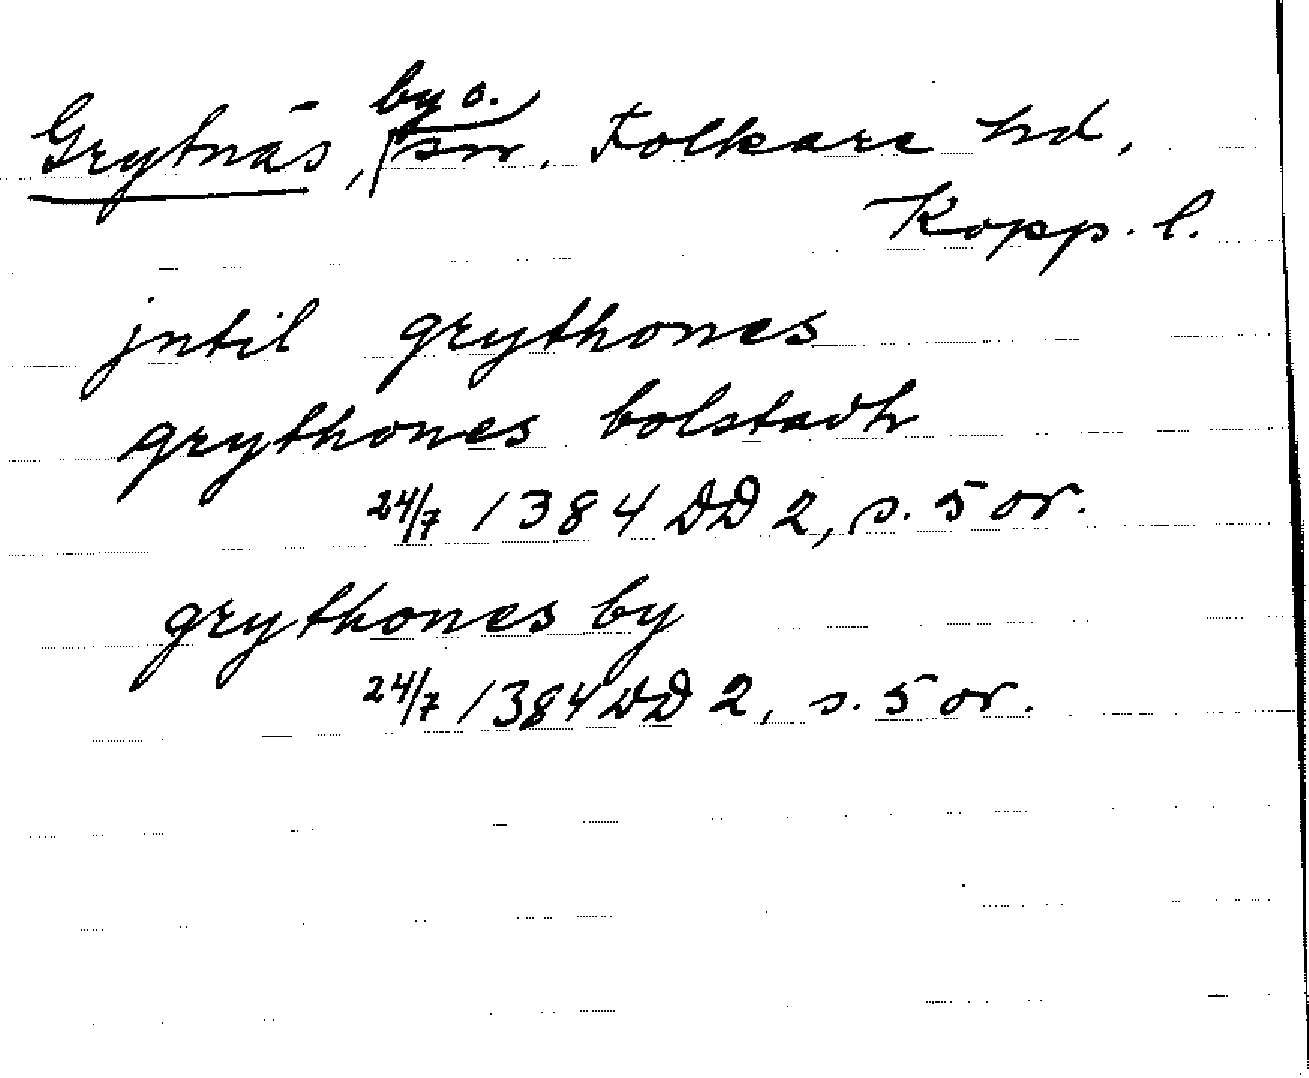 Grytnäs, by o. sn, Folkare hd,
Kopp. l.
jntil grythones
grythones bolstadh
24/7 1384 DD 2, s. 5 or.
grythones by
24/7 1384 DD 2, s. 5 or.